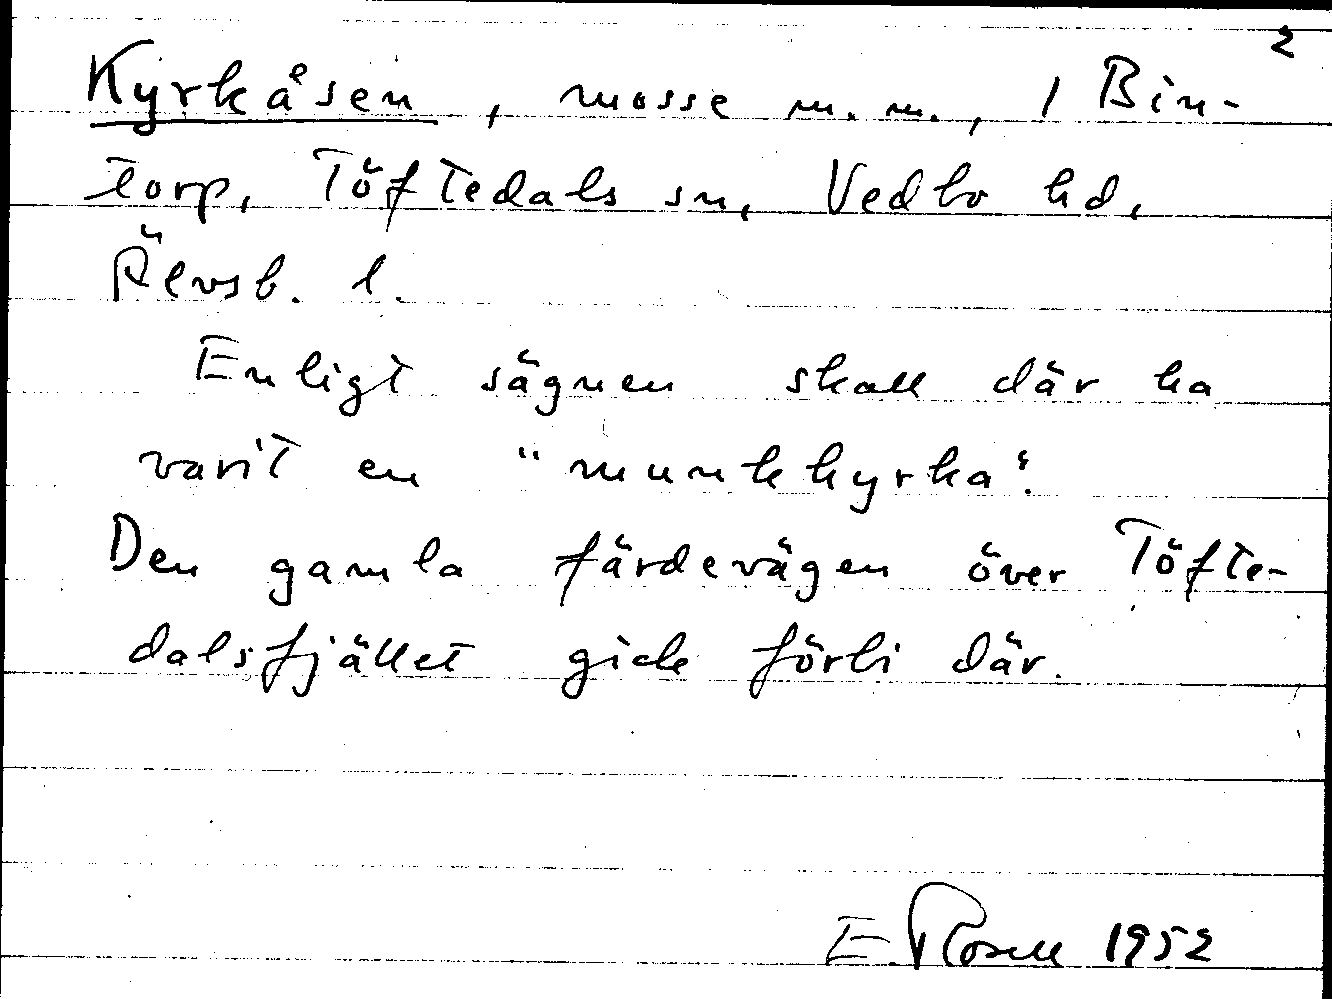 2
Kyrkåsen, mosse m. m., 1 Bin-
torp, Töftedals sn, Vedbo hd,
Älvsb. l.
Enligt sägnen skall där ha
varit en "munkkyrka".
Den gamla färdevägen över Töfte-
dalsfjället gick förbi där.
E. Rosell 1952